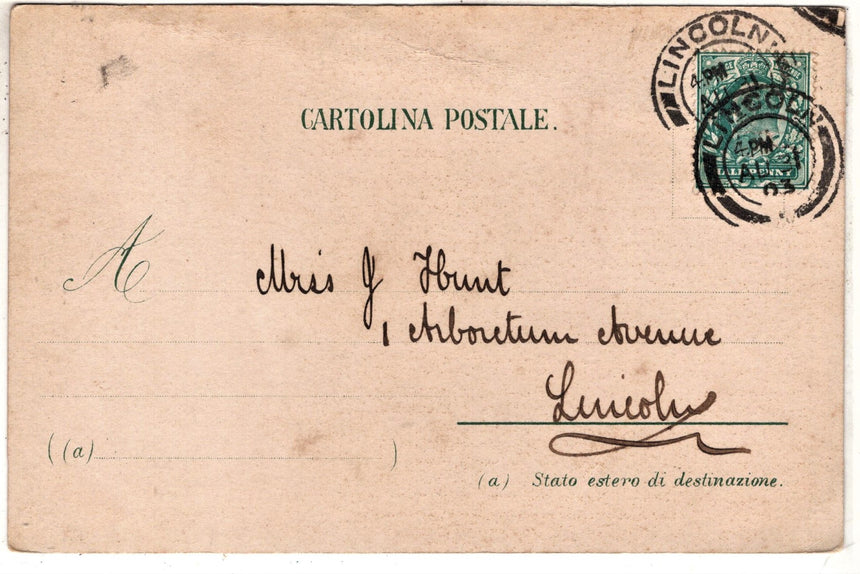 LINCOLN
4 PM
AU
LINCOLN
4. PM
AU 31
03
HALFPENNY
CARTOLINA POSTALE.
A
Miss J Hunt
1 Arboretum Avenue
Lincoln
((a) )
(a) Stato estero di destinazione.